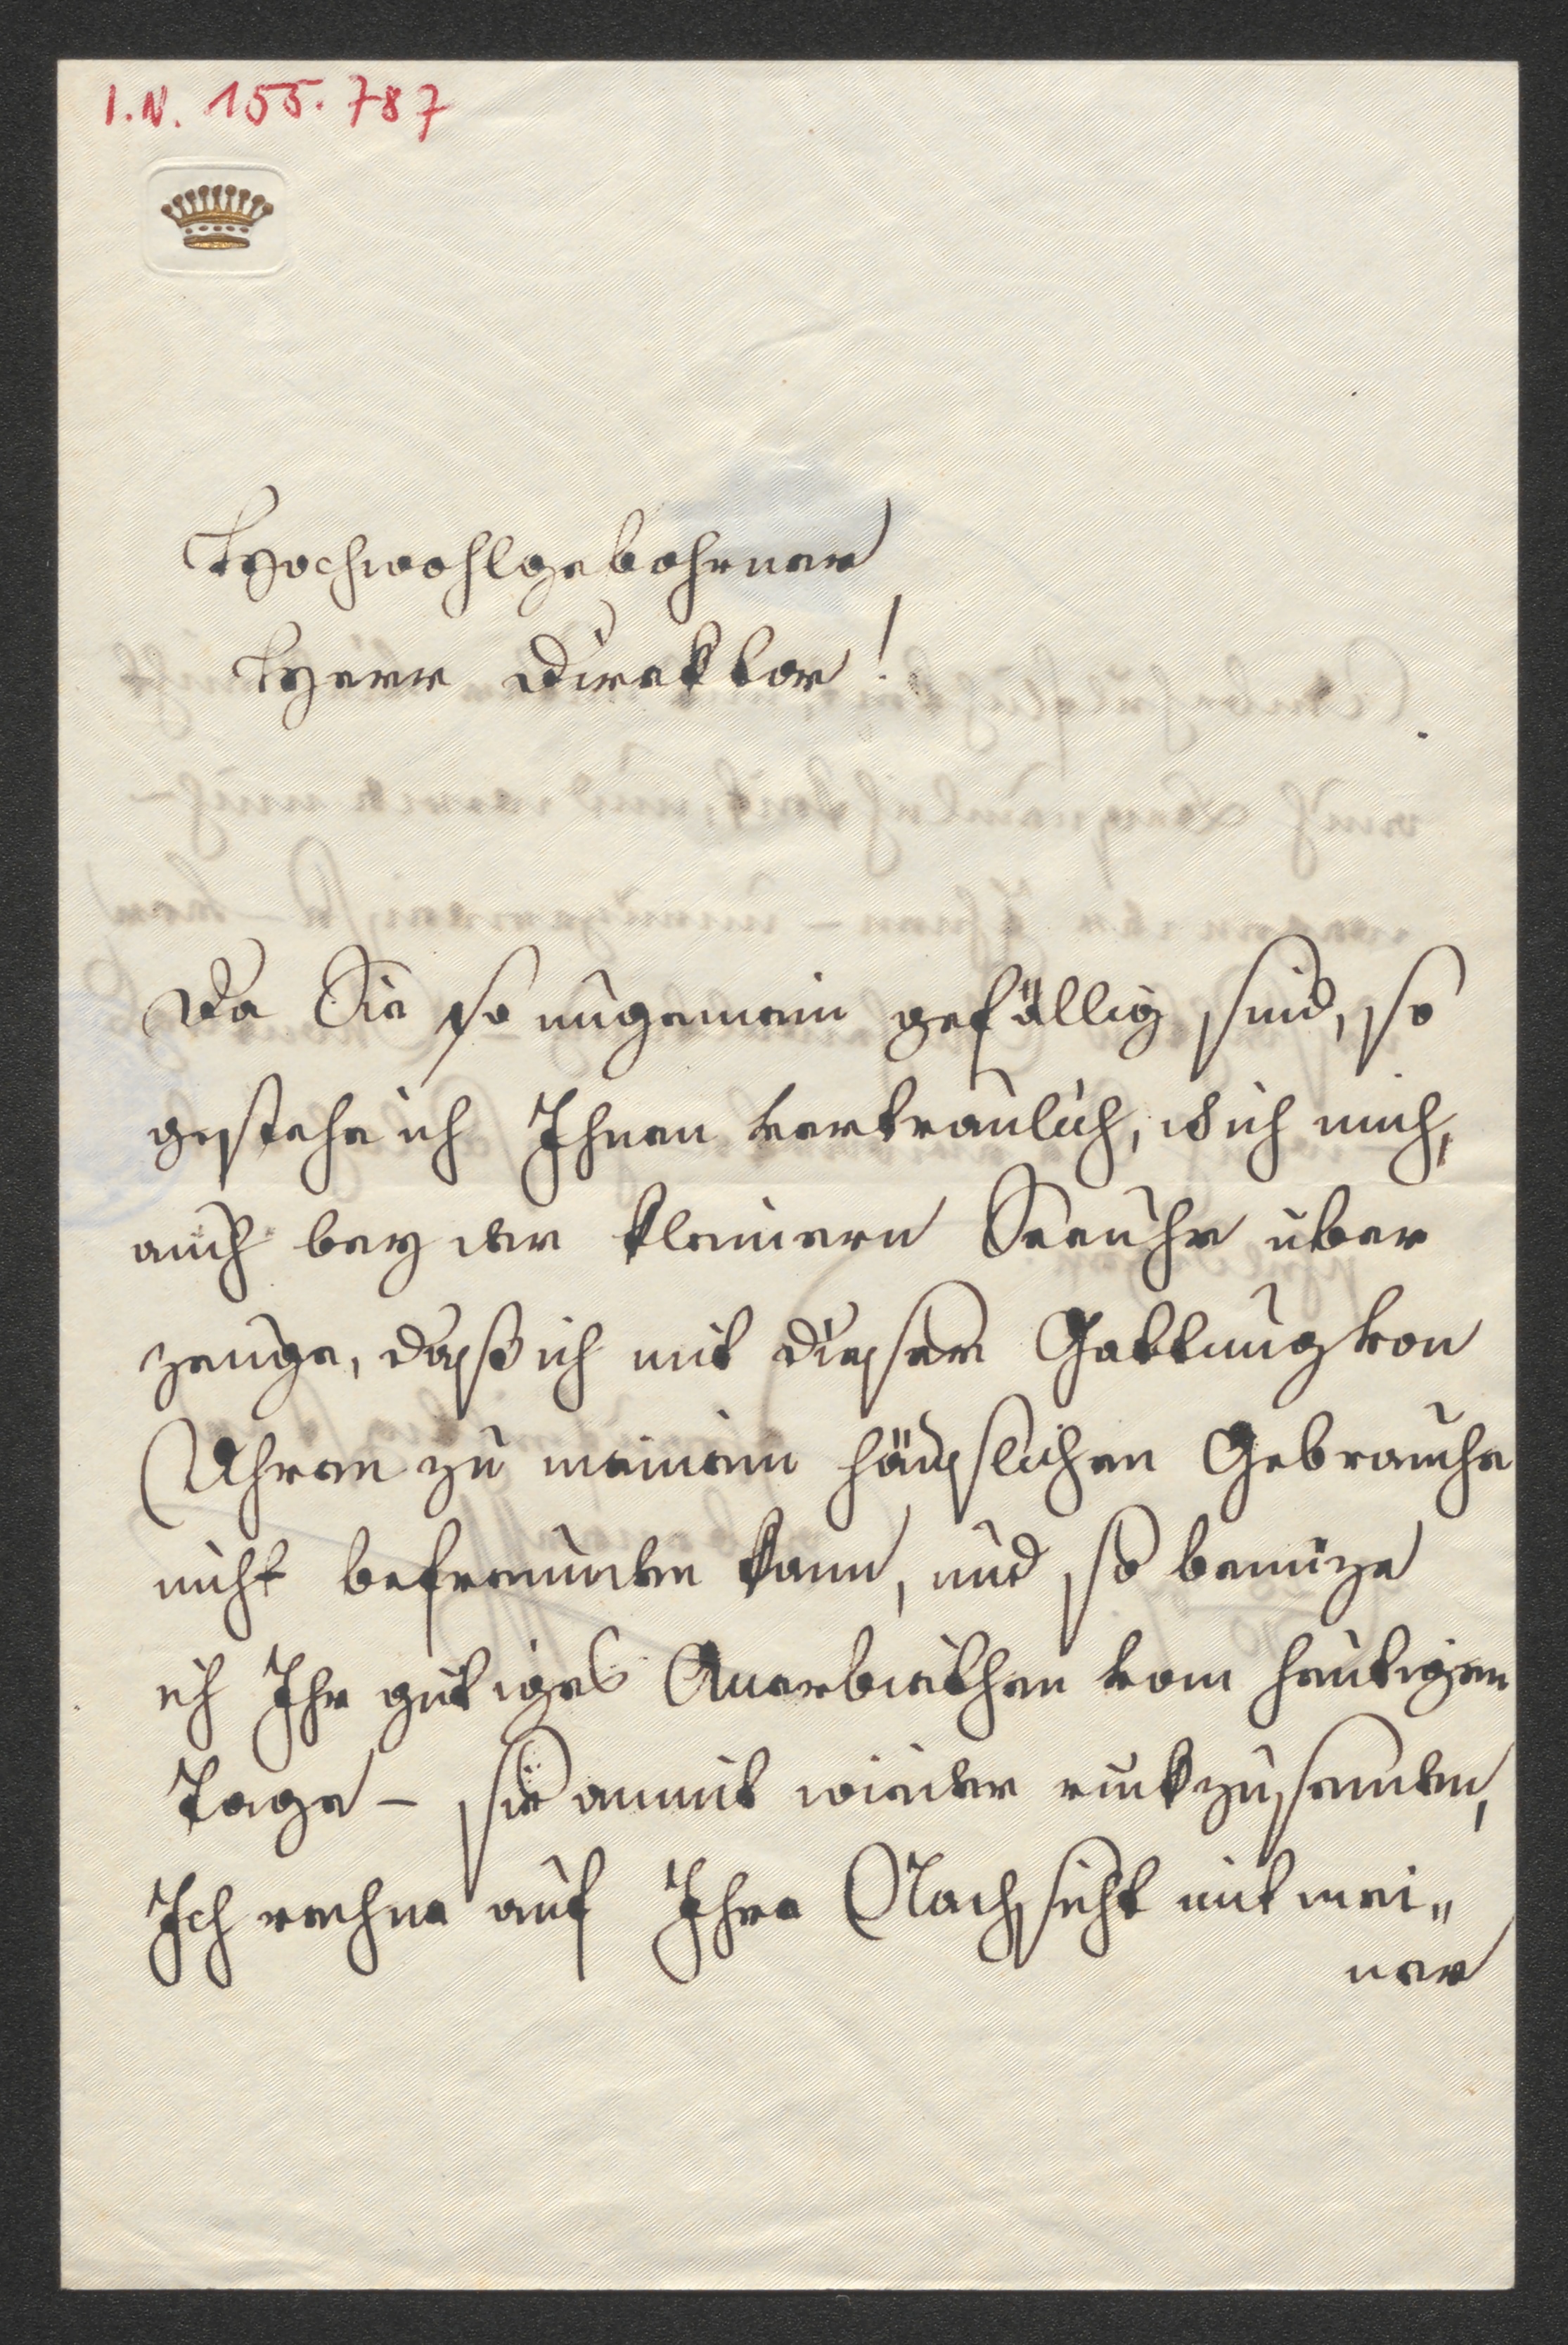 I.N. 155.787
Hochwohlgebohrner
Herr Direktor!
Da Sie so ungemein gefällig sind, so
gestehe ich Ihnen vertraulich, ds ich mich,
auch bey der kleinern Seeuhr über
zeuge, dasß ich mit dieser Gattung von
Uhren zu meinem häuslichen Gebrauche
nicht befreunden kann, und so benüze
ich Ihr gütiges Anerbiethen vom heutigen
Tage – sie anmit wieder rückzusenden,
Ich rechne auf Ihre Nachsicht mit mei„
ner